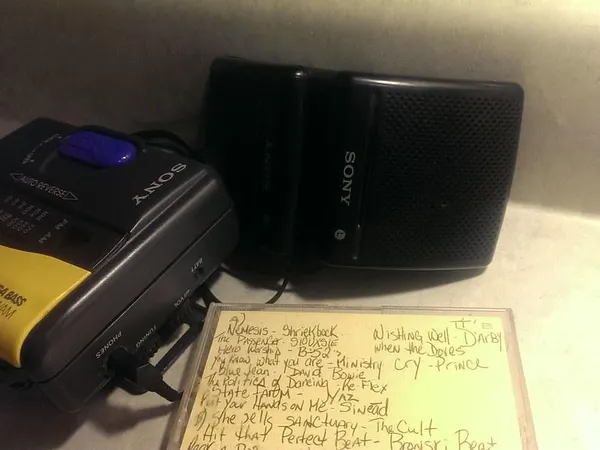 SONY
AUTO REVERSE
FM AM
BASS
AM
BATT
TUNING
PHONES
SONY
Nemesis - Shriekback
The Passenger - SIOUXSIE
Hero Worship - B-52's
You know what you are - Ministry
Blue Jean - David Bowie
The Politics of Dancing - Re-Flex
State Farm - YAZ
Put your Hands on Me - Sinead
She sells SANCTUARY - The Cult
Hit that Perfect Beat - Bronski Beat
Wishing Well - D'Arby
When the Doves
Cry - Prince